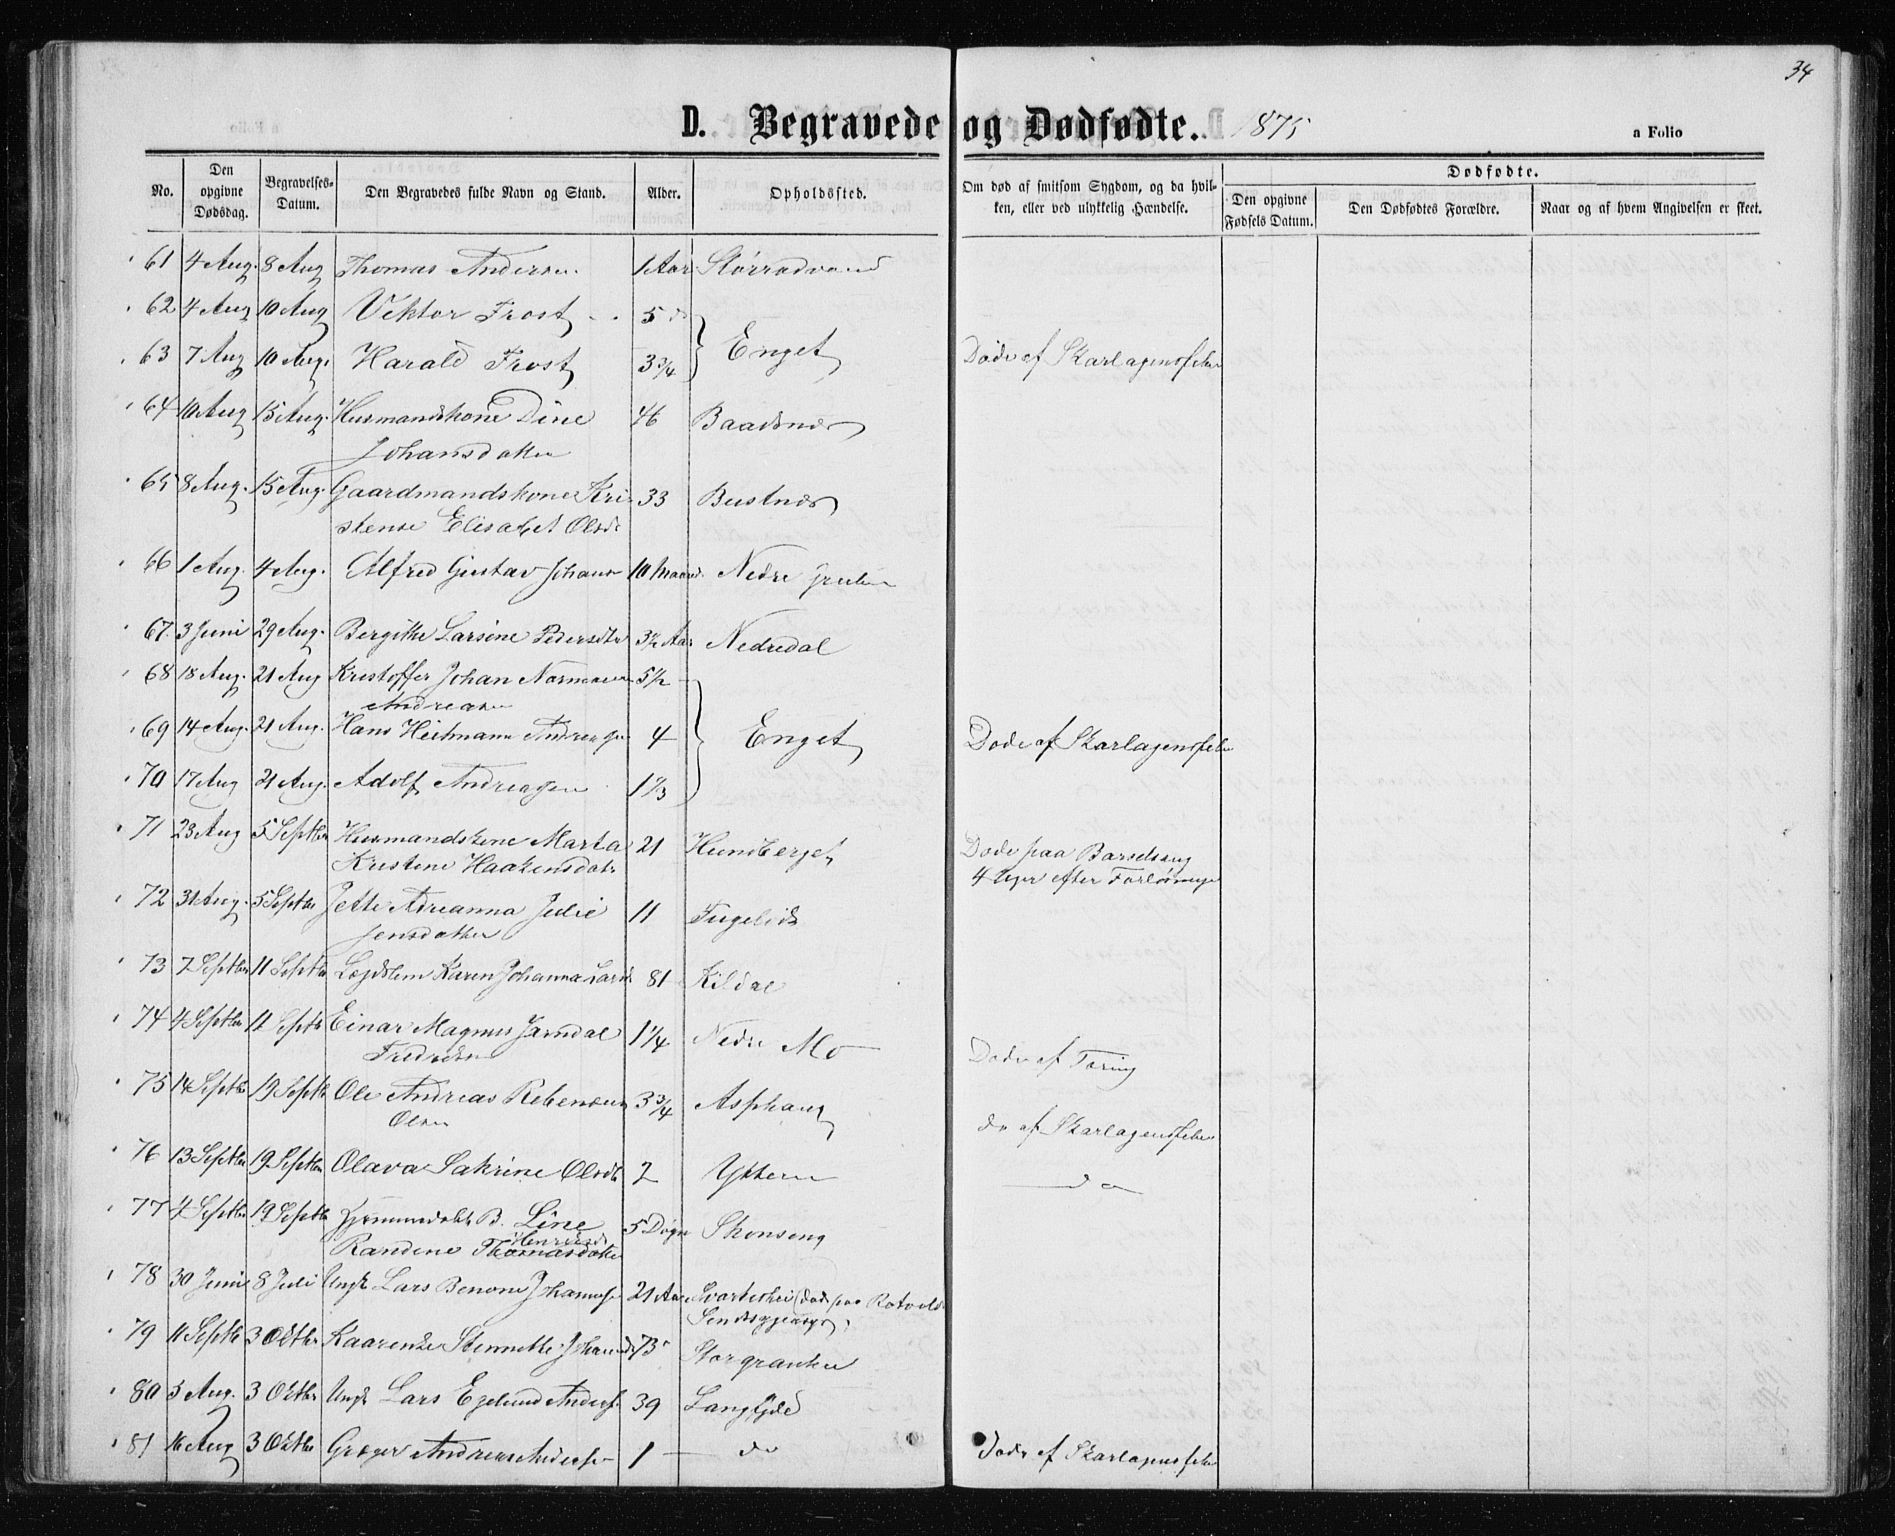 34
D. Begravede og Dødfødte. 1875
a Folio
No.
Den opgivne Dødsdag.
Begravelses-Datum.
Den Begravedes fulde Navn og Stand.
Alder.
Opholdssted.
Om død af smitsom Sygdom, og da hvil-
ken, eller ved ulykkelig Hændelse.
Dødfødte.
Den opgivne Fødsels Datum.
Den Dødfødtes Forældre.
Naar og af hvem Angivelsen er skeet.
61 4 Aug. 8 Aug Thomas Andersen 1 Aar Storradvand
62 4 Aug 10 Aug Viktor Frost 5 do
63 7 Aug 10 Aug. Harald Frost 3 3/4 Enget Døde af Skarlagensfeber
64 10 Aug 15 Aug. Husmandskone Dine 46 Baadsnæs
Johansdatter
65 8 Aug. 15 Aug. Gaardmandskone Kri- 33 Bustnæs
stense Elisabet Olsdr
66 1 Aug. 4 Aug. Alfred Gustav Johans 10 Maand. Nedre Gruben
67 3 Juni 29 Aug. Bergitte Larsine Pedersdtr 3 1/2 Aar Nedredal
68 18 Aug. 21 Aug Kristoffer Johan Normann 5 1/2
Andreasen
69 14 Aug. 21 Aug. Hans Heitmann Andreasen 4 Enget Døde af Skarlagensfeber
70 17 Aug 21 Aug. Adolf Andreasen 1 1/3
71 23 Aug 5 Septbr Husmandskone Marta 21 Humberget Døde paa Barselseng
Kristine Haakensdatr 4 Uger efter Forløsningen
72 31 Aug. 5 Septbr Jette Adrianna Julie 11 Fugelids
Jensdatter
73 7 Septbr 11 Septbr Lægdslem Karen Johanna Larsd 81 Kildal
74 4 Septbr 12 Septbr Einar Magnus Jarndal 1 1/4 Nedre Mo Døde af Tæring
Fredriksen
75 14 Septbr 19 Septbr Ole Andreas Rebensen 3 3/4 Asphaug do af Skarlagensfeber
Olsen
76 13 Septbr 19 Septbr Olava Sakrine Olsdtr 2 Ytteren do
77 4 Septbr 19 Septbr Hjemmedøbt B. Line 5 Døgn Skonseng
Henriksd
Randine Thomasdatter
78 30 Juni 8 Juli Ungk Lars Benoni Johannesen 21 Aar Svartishei (død paa Rotvold
Sindssygeasyl)
79 11 Septbr 3 Oktbr Kaarenke Stennette Johansd 73 Storgranlien
80 5 Aug. 3 Oktbr Ungk Lars Egelund Anders. 39 Langfjeld
81 16 Aug 3 Oktbr Grøger Andreas Anders. 1 do Døde af Skarlagensfeber